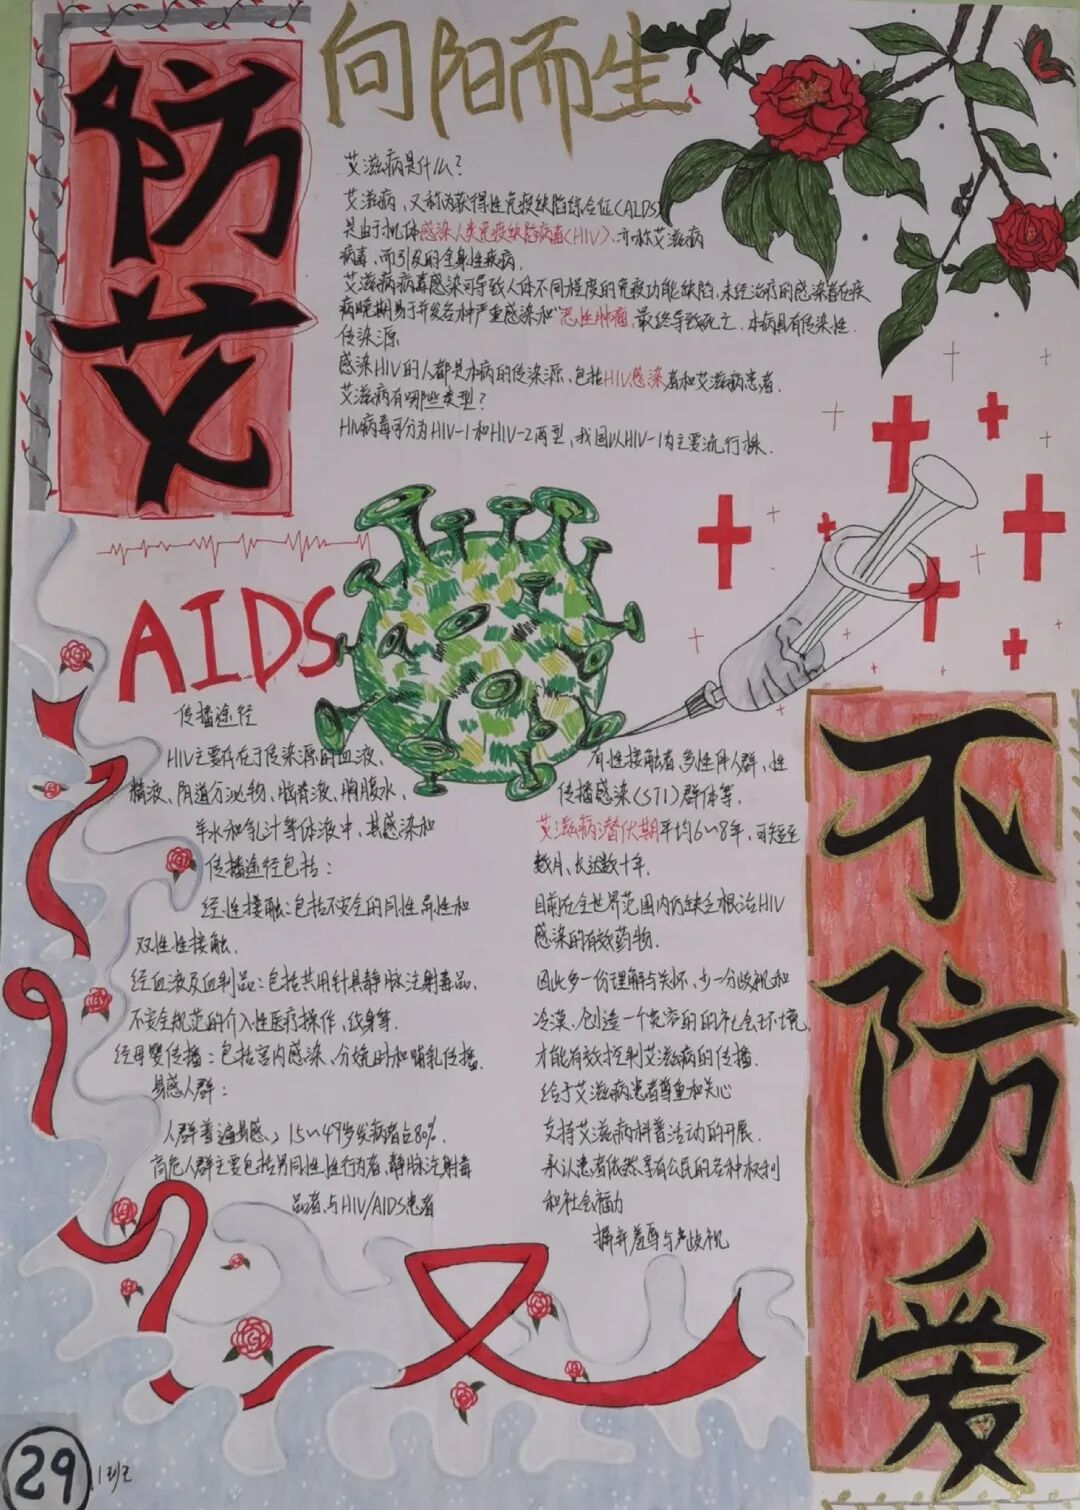 防艾
向阳而生
艾滋病是什么？
艾滋病，又称为获得性免疫缺陷综合征(AIDS)
是由于机体感染人类免疫缺陷病毒(HIV)，亦称艾滋病
病毒，而引发的全身性疾病．
艾滋病病毒感染可导致人体不同程度的免疫功能缺陷，未经治疗的感染者在疾
病晚期易于并发各种严重感染和恶性肿瘤，最终导致死亡．本病具有传染性．
传染源
感染HIV的人都是本病的传染源，包括HIV感染者和艾滋病患者．
艾滋病有哪些类型？
HIV病毒可分为HIV-1和HIV-2两型，我国以HIV-1为主要流行株．
AIDS
传播途径
HIV主要存在于传染源的血液、
精液、阴道分泌物、脑脊液、胸腹水、
羊水和乳汁等体液中，其感染和
传播途径包括：
经性接触：包括不安全的同性异性和
双性性接触．
经血液及血制品：包括共用针具静脉注射毒品，
不安全规范的介入性医疗操作，纹身等．
经母婴传播：包括宫内感染、分娩时和哺乳传播．
易感人群：
人群普遍易感，15～49岁发病者占80%．
高危人群主要包括男同性性行为者、静脉注射毒
品者、与HIV/AIDS患者
有性接触者、多性伴人群、性
传播感染(STI)群体等．
艾滋病潜伏期平均6～8年，可短至
数月，长达数十年．
目前在全世界范围内仍缺乏根治HIV
感染的有效药物．
因此多一份理解与关怀，少一分歧视和
冷漠，创造一个宽容的的社会环境，
才能有效控制艾滋病的传播．
给于艾滋病患者尊重和关心
支持艾滋病科普活动的开展．
承认患者依然享有公民的各种权利
和社会福力
摒弃羞辱与歧视
不防爱
29
1班